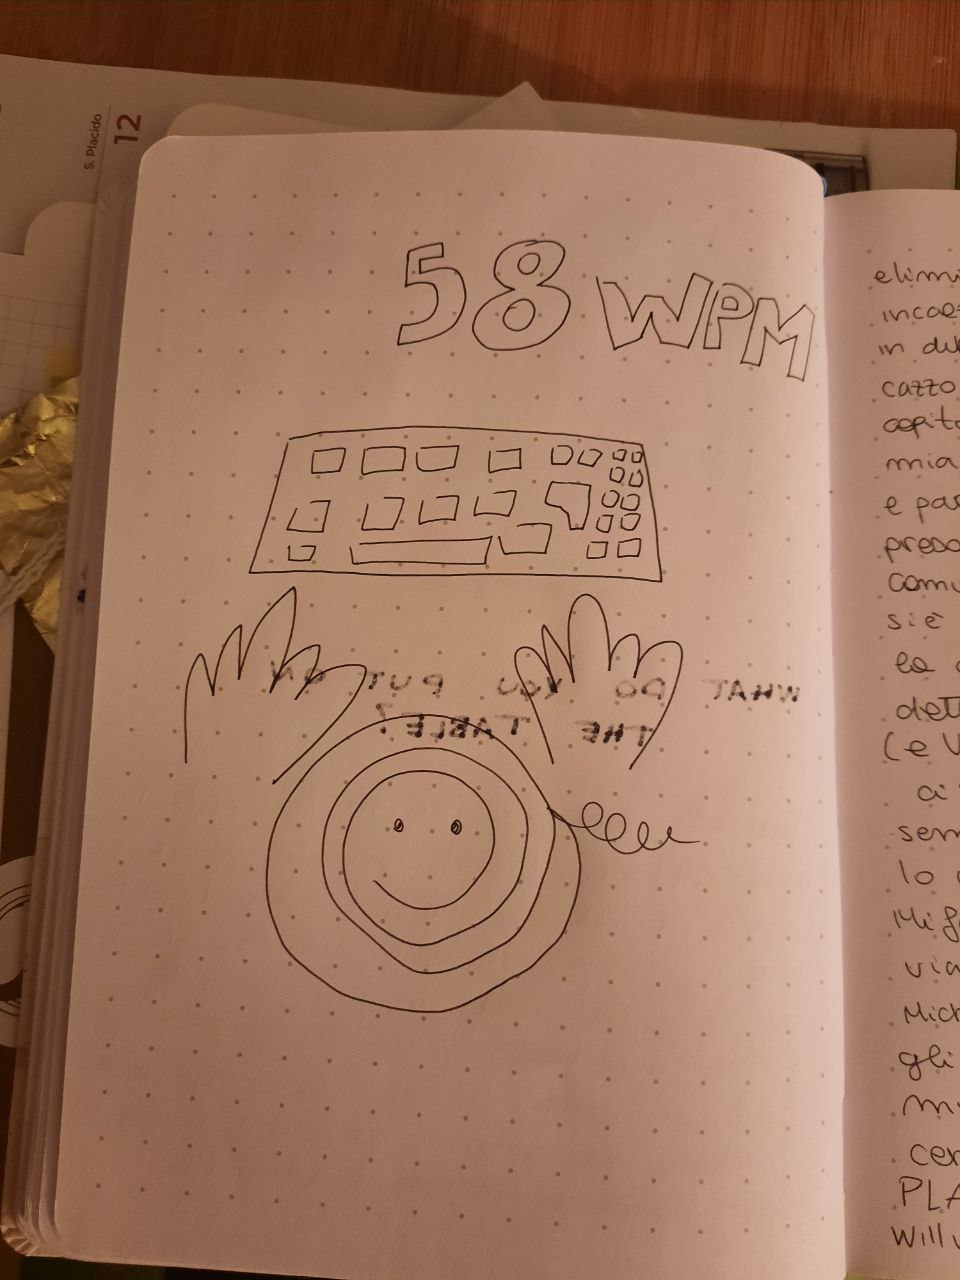 S. Placido
12
58 WPM
WHAT DO YOU PUT ON
THE TABLE?
elimi
incaz
in du
cazzo
capito
mia
e pas
preso
comu
si è
la
dett
(e V
ai
sem
lo
Mi
via
Mich
gli
m
cer
PLA
will